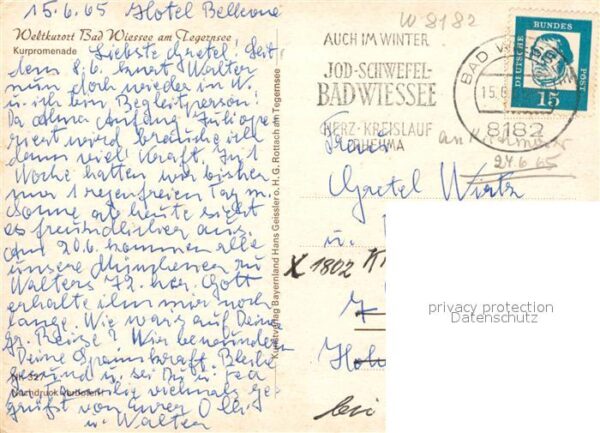 15.6.65 Hotel Bellevue
Weltkurort Bad Wiessee am Tegernsee
Kurpromenade
Liebste Gretel! Seit
dem 8.6. kurt Walter
nun doch wieder in W.
u. ich bin Begleitperson!
Da Anfang Juli operiert
wird brauche ich
dann viel Kraft. In 1
Woche hatten wir bisher
nur 1 regenfreien Tag m.
Sonne, ab heute sieht
es freundlicher aus.
Am 20.6. kommen alle
unsere Münchener zu
Walters 72. her. Gott
erhalte ihn mir noch
lange. Wie war's auf Deiner
gr. Reise? Wir bewundern
Deine Spannkraft. Bleibe
gesund u. sei Du u.
Familie vielmals ge-
grüßt von Eurer Olli
u. Walter
NK 327
Nachdruck verboten
Kunstverlag Bayernland Hans Geissler o. H. G. Rottach am Tegernsee
W 8182
AUCH IM WINTER
JOD-SCHWEFEL-
BAD WIESSEE
HERZ-KREISLAUF
RHEUMA
BAD WIESSEE
15.6.
8182
DEUTSCHE BUNDESPOST
15
24.6.65
Frau
Gretel Wirtz
u.
X 1802
7
bei
privacy protection
Datenschutz